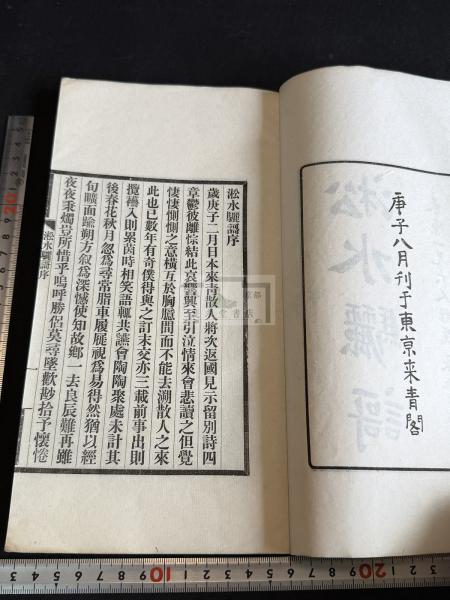 庚子八月刊于東京来青閣
淞水驪謌序
歲庚子二月日本來青散人將次返國見示留別詩四
章鬱彼離悰結此哀響興至引泣情來會悲讀之但覺
悽悽惻惻之意橫互於胸臆間而不能去溯散人之來
此也已數年有奇僕得與之訂末交亦三載前事出則
攬轡入則累茵時相笑語輒共讌會陶陶聚處未計其
後春花秋月忽爲尋常脂車履展視爲易得然猶以經
旬曠面踰朔方叙爲深憾使知故鄉一去良辰難再雖
夜夜秉燭豈所惜乎嗚呼勝侶莫尋墜歡尠拾予懷惓
淞水驪謌序